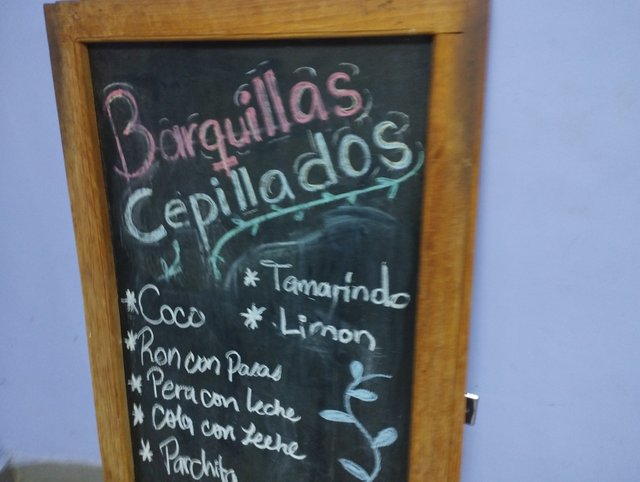 Barquillas
Cepillados
* Tamarindo
* Limon
* Coco
* Ron con Pasas
* Pera con Leche
* Cola con Leche
* Parchita